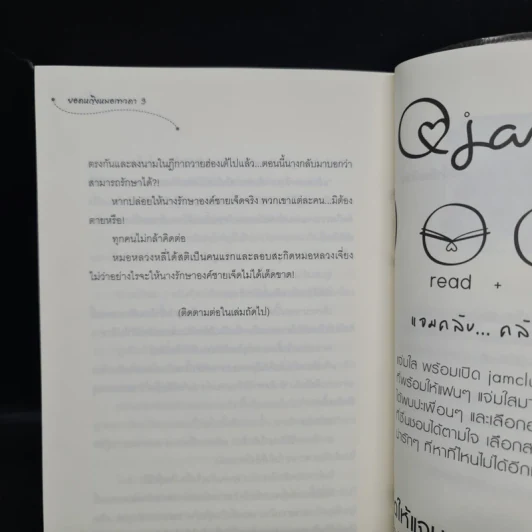 ยอดหญิงหมอเทวดา 3
ตรงกันและลงนามในฎีกาถวายฮ่องเต้ไปแล้ว...ตอนนี้นางกลับมาบอกว่า
สามารถรักษาได้?!
หากปล่อยให้นางรักษาองค์ชายเจ็ดจริง พวกเขาแต่ละคน...มิต้อง
ตายหรือ!
ทุกคนไม่กล้าคิดต่อ
หมอหลวงหลี่ได้สติเป็นคนแรกและลอบสะกิดหมอหลวงเจี่ยง
ไม่ว่าอย่างไรจะให้นางรักษาองค์ชายเจ็ดไม่ได้เด็ดขาด!
(ติดตามต่อในเล่มถัดไป)
jam
read +
แจมคลับ... คลั
แจ่มใส พร้อมเปิด jamclu
ที่พร้อมให้แฟนๆ แจ่มใสมา
ได้พบปะเพื่อนๆ และเลือกอ
ที่ชื่นชอบได้ตามใจ เลือกส
น่ารักๆ ที่หาที่ไหนไม่ได้อีก
ให้แจม